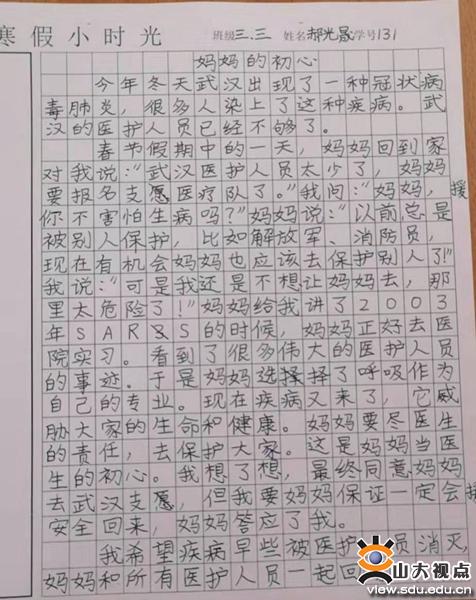 寒假小时光 班级三.三 姓名郝光晟学号131
妈妈的初心
今年冬天武汉出现了一种冠状病
毒肺炎，很多人染上了这种疾病。武
汉的医护人员已经不够了。
春节假期中的一天，妈妈回到家
对我说：“武汉医护人员太少了，妈妈
要报名支愿医疗队了。”我问：“妈妈，援
你不害怕生病吗？”妈妈说：“以前总是
被别人保护，比如解放军、消防员，
现在有机会妈妈也应该去保护别人了！”
我说：“可是我还是不想让妈妈去，那
里太危险了！”妈妈给我讲了2003
年SARS的时候，妈妈正好去医
院实习。看到了很多伟大的医护人员
的事迹。于是妈妈选择择了呼吸作为
自己的专业。现在疾病又来了，它威
胁大家的生命和健康。妈妈要尽医生
的责任，去保护大家。这是妈妈当医
生的初心。我想了想，最终同意妈妈
去武汉支愿，但我要妈妈保证一定会援
安全回来，妈妈答应了我。
我希望疾病早些被医护 员消灭，
妈妈和所有医护人员一起回
山大视点
www.view.sdu.edu.cn